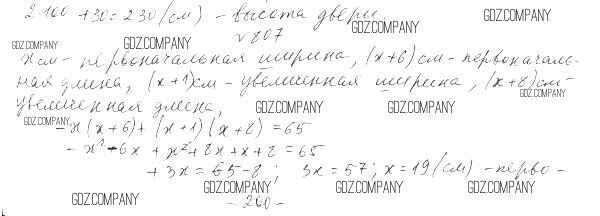 2 100 + 30 = 230 (см) - высота двери.
GDZ.COMPANY
№ 807
GDZ.COMPANY
GDZ.COMPANY
GDZ.COMPANY
x см - первоначальная ширина, (x+6) см - первоначаль-
ная длина, (x+1) см - увеличенная ширина, (x+8) см -
GDZ.COMPANY
увеличенная длина,
GDZ.COMPANY
GDZ.COMPANY
GDZ.COMPANY
- x(x+6) + (x+1)(x+8) = 65
- x² - 6x + x² + 8x + x + 8 = 65
+ 3x = 65 - 8; 3x = 57; x = 19 (см) - перво -
GDZ.COMPANY GDZ.COMPANY GDZ.COMPANY GDZ.COMPANY
- 200 -